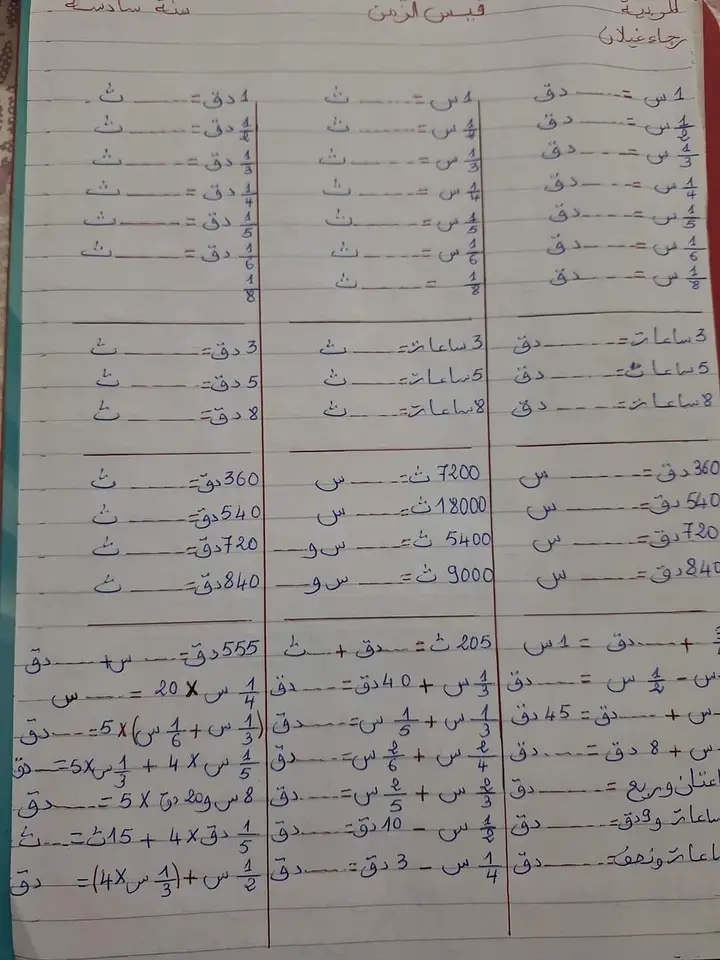 المربية قيس الزمن سنة سادسة
رجاء غيلان
1 س = ------ دق
1/2 س = ------ دق
1/3 س = ------ دق
1/4 س = ------ دق
1/5 س = ------ دق
1/6 س = ------ دق
1/8 س = ------ دق
1 س = ------ ث
س = ------ ث
1/3 س = ------ ث
1/4 س = ------ ث
1/5 س = ------ ث
1/6 س = ------ ث
1/8 = ------ ث
1 دق = ------ ث
1/2 دق = ------ ث
1/3 دق = ------ ث
1/4 دق = ------ ث
1/5 دق = ------ ث
1/6 دق = ------ ث
1/8
3 ساعات = ------ دق
5 ساعات = ------ دق
8 ساعات = ------ دق
3 ساعات = ------ ث
5 ساعات = ------ ث
8 ساعات = ------ ث
3 دق = ------ ث
5 دق = ------ ث
8 دق = ------ ث
360 دق = ------ س
540 دق = ------ س
720 دق = ------ س
840 دق = ------ س
7200 ث = ------ س
18000 ث = ------ س
5400 ث = ------ س و ------
9000 ث = ------ س و ------
360 دق = ------ ث
540 دق = ------ ث
720 دق = ------ ث
840 دق = ------ ث
+ ------ دق = 1 س
س - 1/2 س = ------ دق
س + ------ دق = 45 دق
س + 8 دق = ------ دق
وربع = ------ دق
و 9 دق = ------ دق
ونصف = ------ دق
205 ث = ------ دق + ------ ث
1/3 س + 40 دق = ------ دق
1/3 س + 1/5 س = ------ دق
2/4 س + 2/6 س = ------ دق
2/3 س + 2/5 س = ------ دق
1/2 س - 10 دق = ------ دق
1/4 س - 3 دق = ------ دق
555 دق = ------ س + ------ دق
1/4 س × 20 = ------ س
(1/3 س + 1/6 س) × 5 = ------ دق
1/5 س × 4 + 1/3 س × 5 = ------ دق
8 س و 20 دق × 5 = ------ دق
1/5 دق × 4 + 15 ث = ------ ث
1/2 س + (1/3 س × 4) = دق